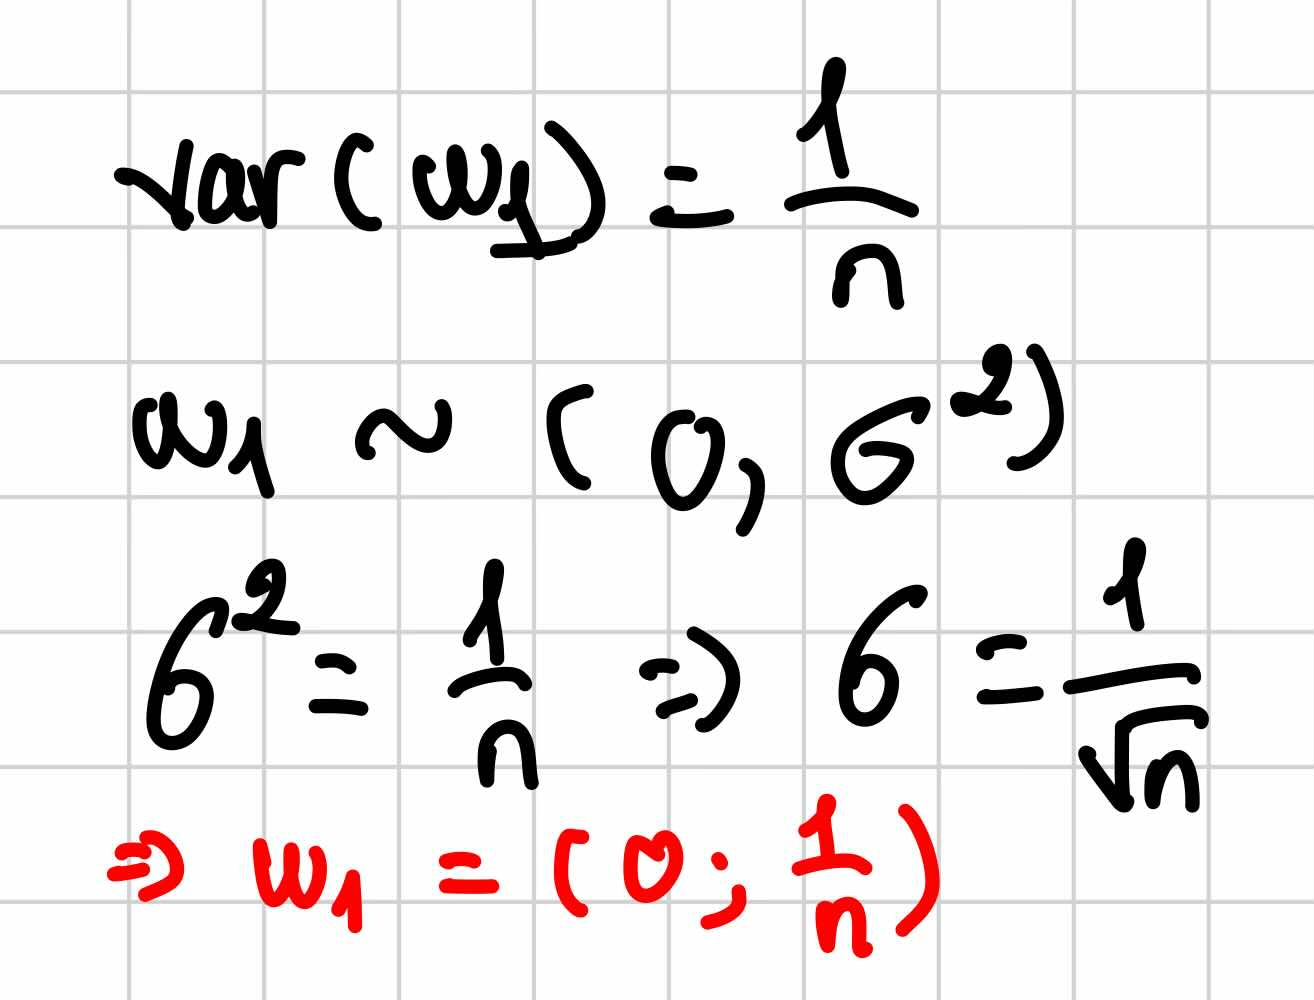 var(w₁) = 1/n
w₁ ~ (0, σ²)
σ² = 1/n ⇒ σ = 1/√n
⇒ w₁ = (0; 1/n)